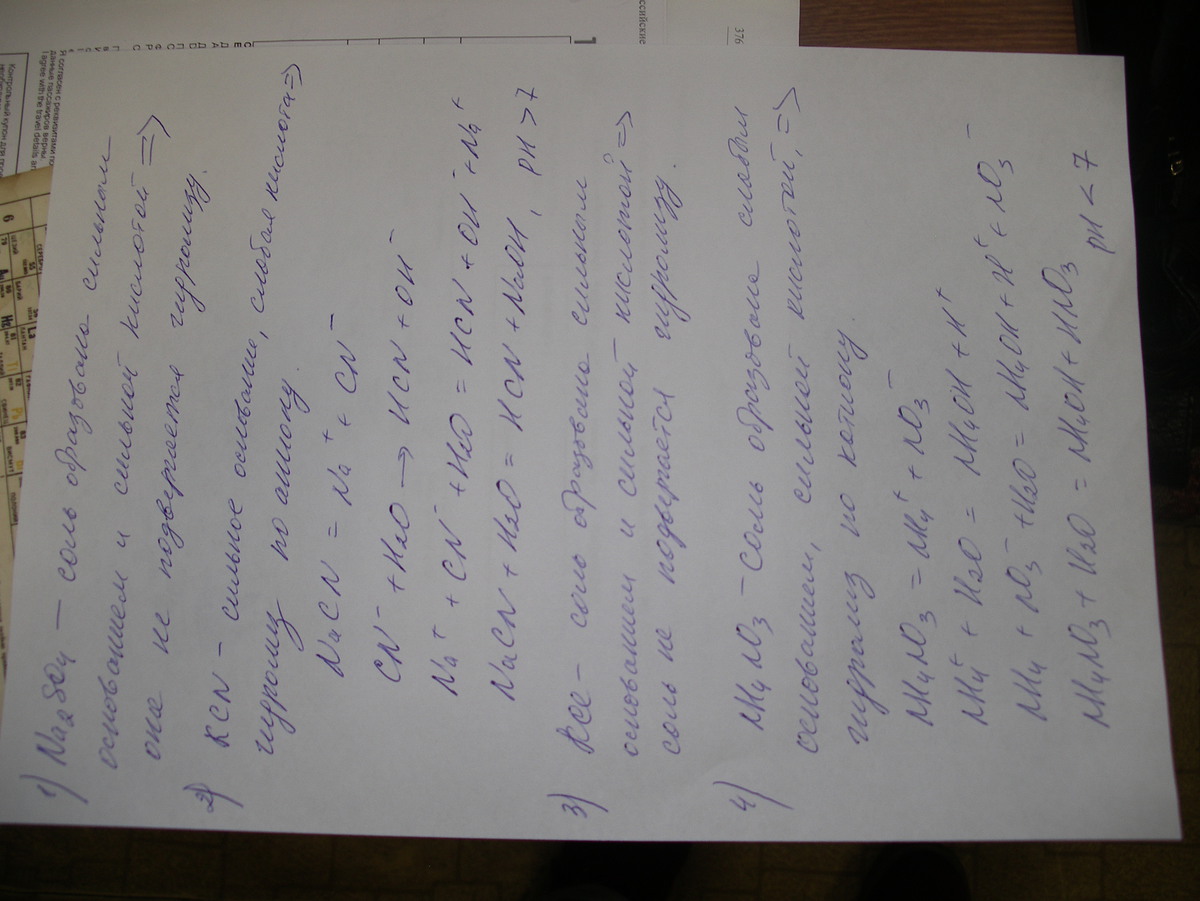 1) Na2SO4 — соль образована сильным
основанием и сильной кислотой =>
она не подвергается гидролизу.
2) KCN – сильное основание, слабая кислота =>
гидролиз по аниону.
NaCN = Na⁺ + CN⁻
CN⁻ + H2O → HCN + OH⁻
Na⁺ + CN⁻ + H2O = HCN + OH⁻ + Na⁺
NaCN + H2O = HCN + NaOH, pH > 7
3) KCl – соль образована сильным
основанием и сильной кислотой =>
соль не подвергается гидролизу.
4) NH4NO3 – соль образована слабым
основанием, сильной кислотой, =>
гидролиз по катиону.
NH4NO3 = NH4⁺ + NO3⁻
NH4⁺ + H2O = NH4OH + H⁺
NH4 + NO3⁻ + H2O = NH4OH + H⁺ + NO3⁻
NH4NO3 + H2O = NH4OH + HNO3
pH < 7
376
Я согласен с реквизитами
данные пассажиров верны.
I agree with the travel details
Контрольный купон для